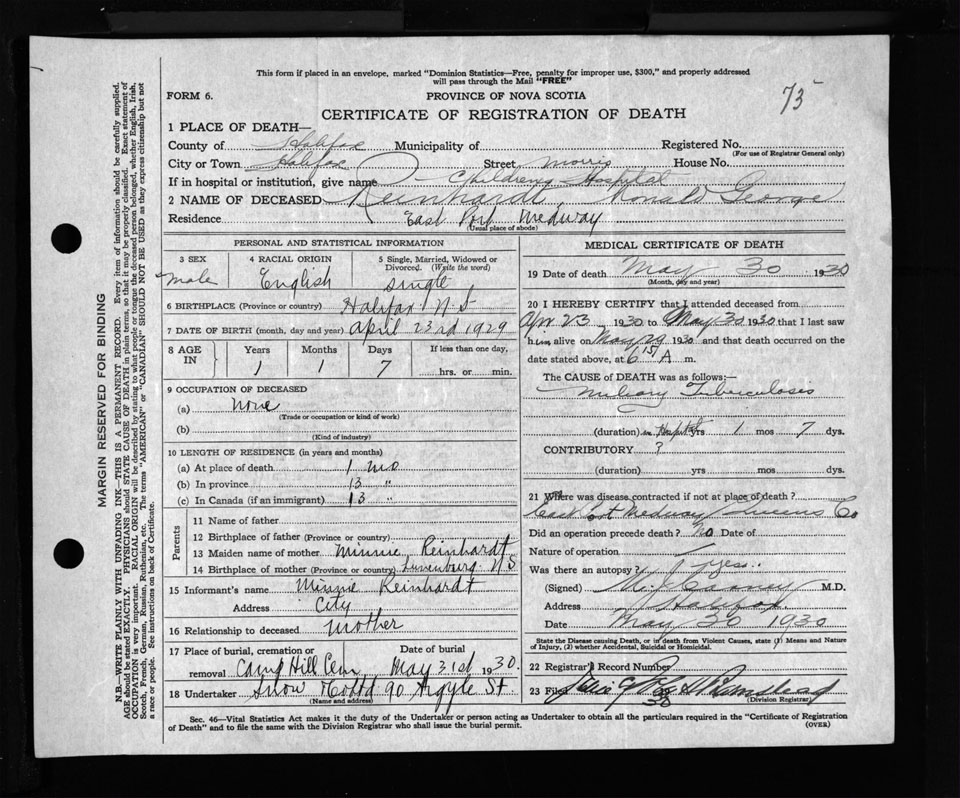 This form if placed in an envelope, marked "Dominion Statistics—Free, penalty for improper use, $300," and properly addressed
will pass through the Mail "FREE"
75
FORM 6.
PROVINCE OF NOVA SCOTIA
CERTIFICATE OF REGISTRATION OF DEATH
1 PLACE OF DEATH—
County of Halifax Municipality of Registered No.
(For use of Registrar General only)
City or Town Halifax Street Morris House No.
If in hospital or institution, give name Childrens Hospital
2 NAME OF DECEASED Reinhardt, Ronald George
Residence East Port Medway
(Usual place of abode)
PERSONAL AND STATISTICAL INFORMATION
3 SEX
Male
4 RACIAL ORIGIN
English
5 Single, Married, Widowed or
Divorced. (Write the word)
Single
6 BIRTHPLACE (Province or country) Halifax N.S
7 DATE OF BIRTH (month, day and year) April 23rd 1929
8 AGE IN
Years Months Days If less than one day,
1 1 7 hrs. or min.
9 OCCUPATION OF DECEASED
(a) None
(Trade or occupation or kind of work)
(b)
(Kind of industry)
10 LENGTH OF RESIDENCE (in years and months)
(a) At place of death 1 mo
(b) In province 13 "
(c) In Canada (if an immigrant) 13 "
Parents
11 Name of father
12 Birthplace of father (Province or country)
13 Maiden name of mother Minnie Reinhardt
14 Birthplace of mother (Province or country) Lunenburg N S
15 Informant Minnie Reinhardt
Address City
16 Relationship to deceased Mother
17 Place of burial, cremation or Date of burial
removal Camp Hill Cem May 31st 1930.
18 Undertaker Snow Co Ltd 90 Argyle St.
(Name and address)
MEDICAL CERTIFICATE OF DEATH
19 Date of death May 30 1930
(Month, day and year)
20 I HEREBY CERTIFY that I attended deceased from
Apr 23, 1930 to May 30 1930 that I last saw
him alive on May 29 1930 and that death occurred on
date stated above, at 6 15 A m.
The CAUSE OF DEATH was as follows:—
Miliary Tuberculosis
(duration) in Hospital yrs 1 mos 7 dys.
CONTRIBUTORY ?
(duration) yrs mos dys.
21 Where was disease contracted if not at place of death?
East Port Medway Queens Co
Did an operation precede death? No Date of
Nature of operation
Was there an autopsy? Yes..
(Signed) M.D.
Address Halifax
Date May 30 1930
State the Disease causing Death, or in death from Violent Causes, state (1) Means and Nature
of Injury, (2) whether Accidental, Suicidal or Homicidal.
22 Registrar's Record Number
23 Filed
(Division Registrar)
Sec. 46—Vital Statistics Act makes it the duty of the Undertaker or person acting as Undertaker to obtain all the particulars required in the "Certificate of Registration
of Death" and to file the same with the Division Registrar who shall issue the burial permit.
(OVER)
MARGIN RESERVED FOR BINDING
N.B.—WRITE PLAINLY WITH UNFADING INK—THIS IS A PERMANENT RECORD. Every item of information should be carefully supplied.
AGE should be stated EXACTLY. PHYSICIANS should STATE CAUSE OF DEATH in plain terms, so that it may be properly classified. Exact statement of
OCCUPATION is very important. RACIAL ORIGIN will be described by stating to what people or tongue the deceased person belonged, whether English, Irish,
Scotch, French, German, Russian, Ruthenian, etc. The terms "AMERICAN" or "CANADIAN" SHOULD NOT BE USED as they express citizenship but not
a race or people. See instructions on back of Certificate.